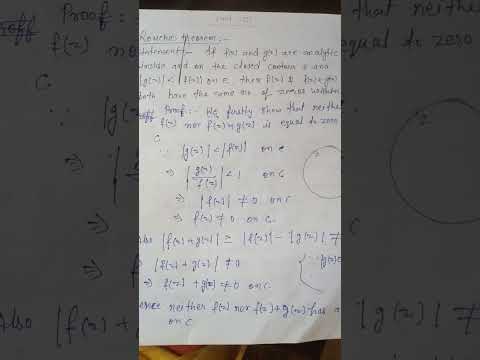 Unit - III
Rouche theorem:-
Statement:- If f(z) and g(z) are analytic
inside and on the closed contour c and
|g(z)| < |f(z)| on c, then f(z) & f(z)+g(z)
both have the same no. of zeros within
Proof:- We firstly show that neither
f(z) nor f(z)+g(z) is equal to zero
C.
∵ |g(z)| < |f(z)| on c
⇒ |g(z)/f(z)| < 1 on c
⇒ |f(z)| ≠ 0 on c
⇒ f(z) ≠ 0 on C.
Also |f(z)+g(z)| ≥ |f(z)| - |g(z)| ≠
⇒ |f(z)+g(z)| ≠ 0
⇒ f(z) + g(z) ≠ 0 on C.
neither f(z) nor f(z)+g(z) has a
on C.